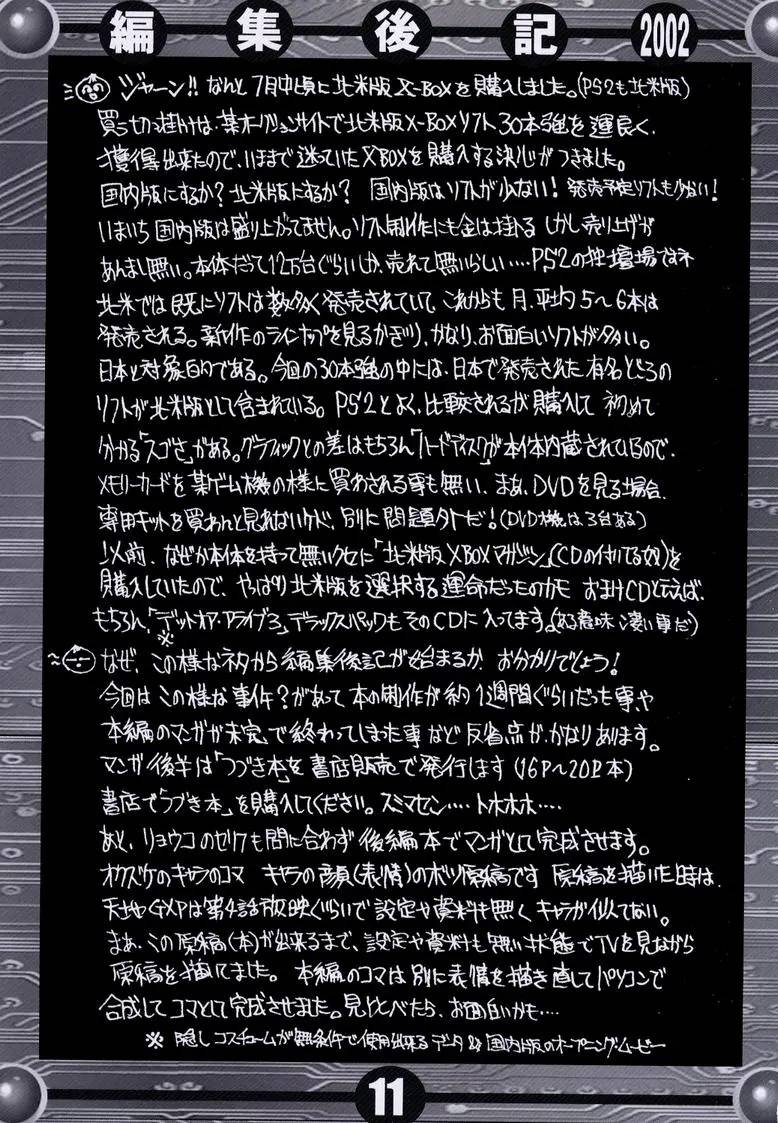 編集後記 2002
ジャーン!! なんと7月中頃に北米版X-BOXを購入しました。(PS2も北米版)
買う切っ掛けは、某オークションサイトで北米版X-BOXソフト30本強を運良く、
獲得出来たので、いままで迷っていたXBOXを購入する決心がつきました。
国内版にするか? 北米版にするか? 国内版はソフトが少ない! 発売予定ソフトも少ない!
いまいち国内版は盛り上がってません。ソフト制作にも金は掛る しかし売り上げが
あんまし無い。本体だって12万台ぐらいしか、売れて無いらしい‥‥PS2の独壇場ですネ
北米では既にソフトは数多く発売されていて、これからも月、平均5〜6本は
発売される。新作のラインナップを見るかぎり、かなり、お面白いソフトが多い。
日本と対象的である。今回の30本強の中には、日本で発売された有名どころの
ソフトが北米版として含まれている。PS2とよく、比較されるが購入して 初めて
分かる「スゴさ」がある。グラフィックとの差はもちろん「ハードディスク」が本体内蔵されているので、
メモリーカードを某ゲーム機の様に買わされる事も無い、まあ、DVDを見る場合、
専用キットを買わんと見れないケド、別に問題外だ!(DVD機は3台ある)
以前、なぜか本体を持って無いクセに「北米版XBOXマガジン」(CDの付いてる奴)を
購入していたので、やっぱり北米版を選択する運命だったのかも おまけCDと云えば、
もちろん「デットオア・アライブ3」デラックスパックもそのCDに入ってます。(ある意味凄い事だ)
※
なぜ、この様なネタから編集後記が始まるか お分かりでしょう!
今回はこの様な事件?があって本の制作が約1週間ぐらいだった事、や
本編のマンガが未完、で終わってしまった事など反省点が、かなりあります。
マンガ後半は「つづき本」を書店販売で発行します(16P〜20P本)
書店で「つづき本」を購入してください。スミマセン‥‥トホホホ‥‥
あと、リョウコのゼクも間に合わず後編本でマンガとして完成させます。
オクズケのキャラのコマ キャラの顔(表情)のボツ原稿です 原稿を描いた時は、
天地GXPは第4話放映ぐらいで設定や資料も無く キャラが似てない。
まあ、この原稿(本)が出来るまで、設定や資料も無い状態でTVを見ながら
原稿を描いてました。本編のコマは別に表情を描き直してパソコンで
合成してコマとして完成させました。見比べたら、お面白いかも‥‥
※ 隠しコスチュームが無条件で使用出来るデータ&国内版のオープニングムービー
11